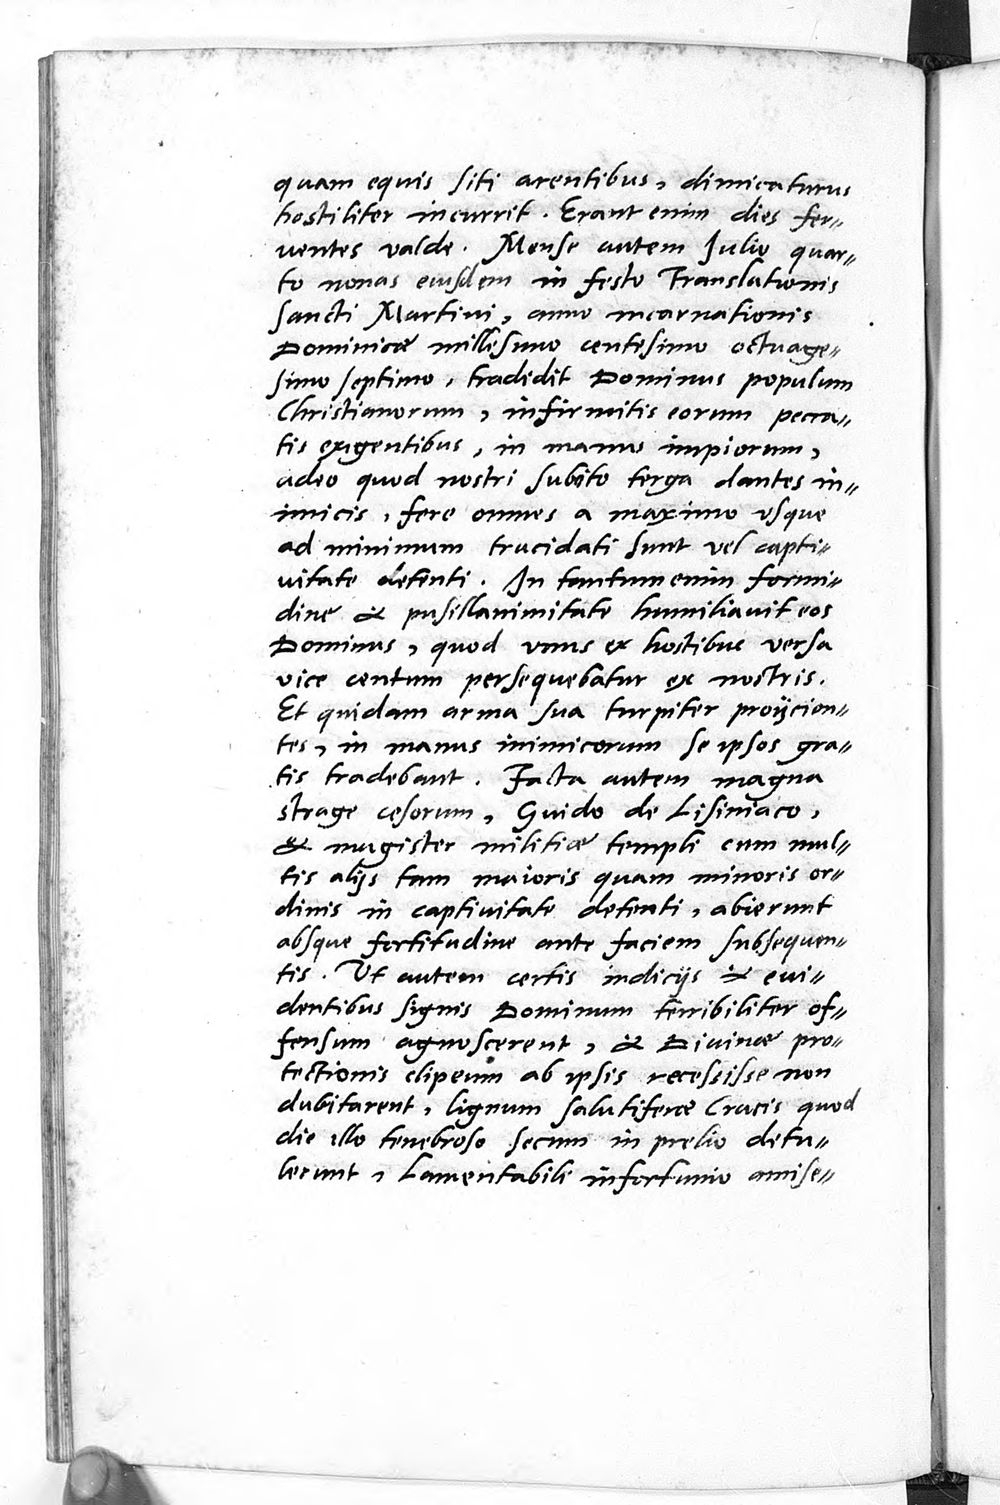 quam equis siti arentibus, dimicaturus
hostiliter incurrit. Erant enim dies fer=
uentes valde. Mense autem Julio quar=
to nonas eiusdem in festo Translationis
sancti Martini, anno incarnationis
Dominicæ millesimo centesimo octuage=
simo septimo, tradidit Dominus populum
Christianorum, infirmitis eorum pecca=
tis exigentibus, in manus impiorum,
adeo quod nostri subito terga dantes in=
imicis, fere omnes a maximo vsque
ad minimum trucidati sunt vel capti=
uitate detenti. In tantum enim formi=
dine & pusillanimitate humiliauit eos
Dominus, quod vnus ex hostibus versa
vice centum persequebatur ex nostris.
Et quidam arma sua turpiter proijcien=
tes, in manus inimicorum se ipsos gra=
tis tradebant. Facta autem magna
strage cesorum, Guido de Lisiniaco,
& magister militiæ templi cum mul=
tis alijs tam maioris quam minoris or=
dinis in captiuitate detenti, abierunt
absque fortitudine ante faciem subsequen=
tis. Ut autem certis indicijs & eui=
dentibus signis Dominum terribiliter of=
fensum agnoscerent, & Diuinæ pro=
tectionis clipeum ab ipsis recessisse non
dubitarent, lignum salutiferæ Crucis quod
die illo tenebroso secum in prelio detu=
lerunt, Lamentabili infortunio amise=